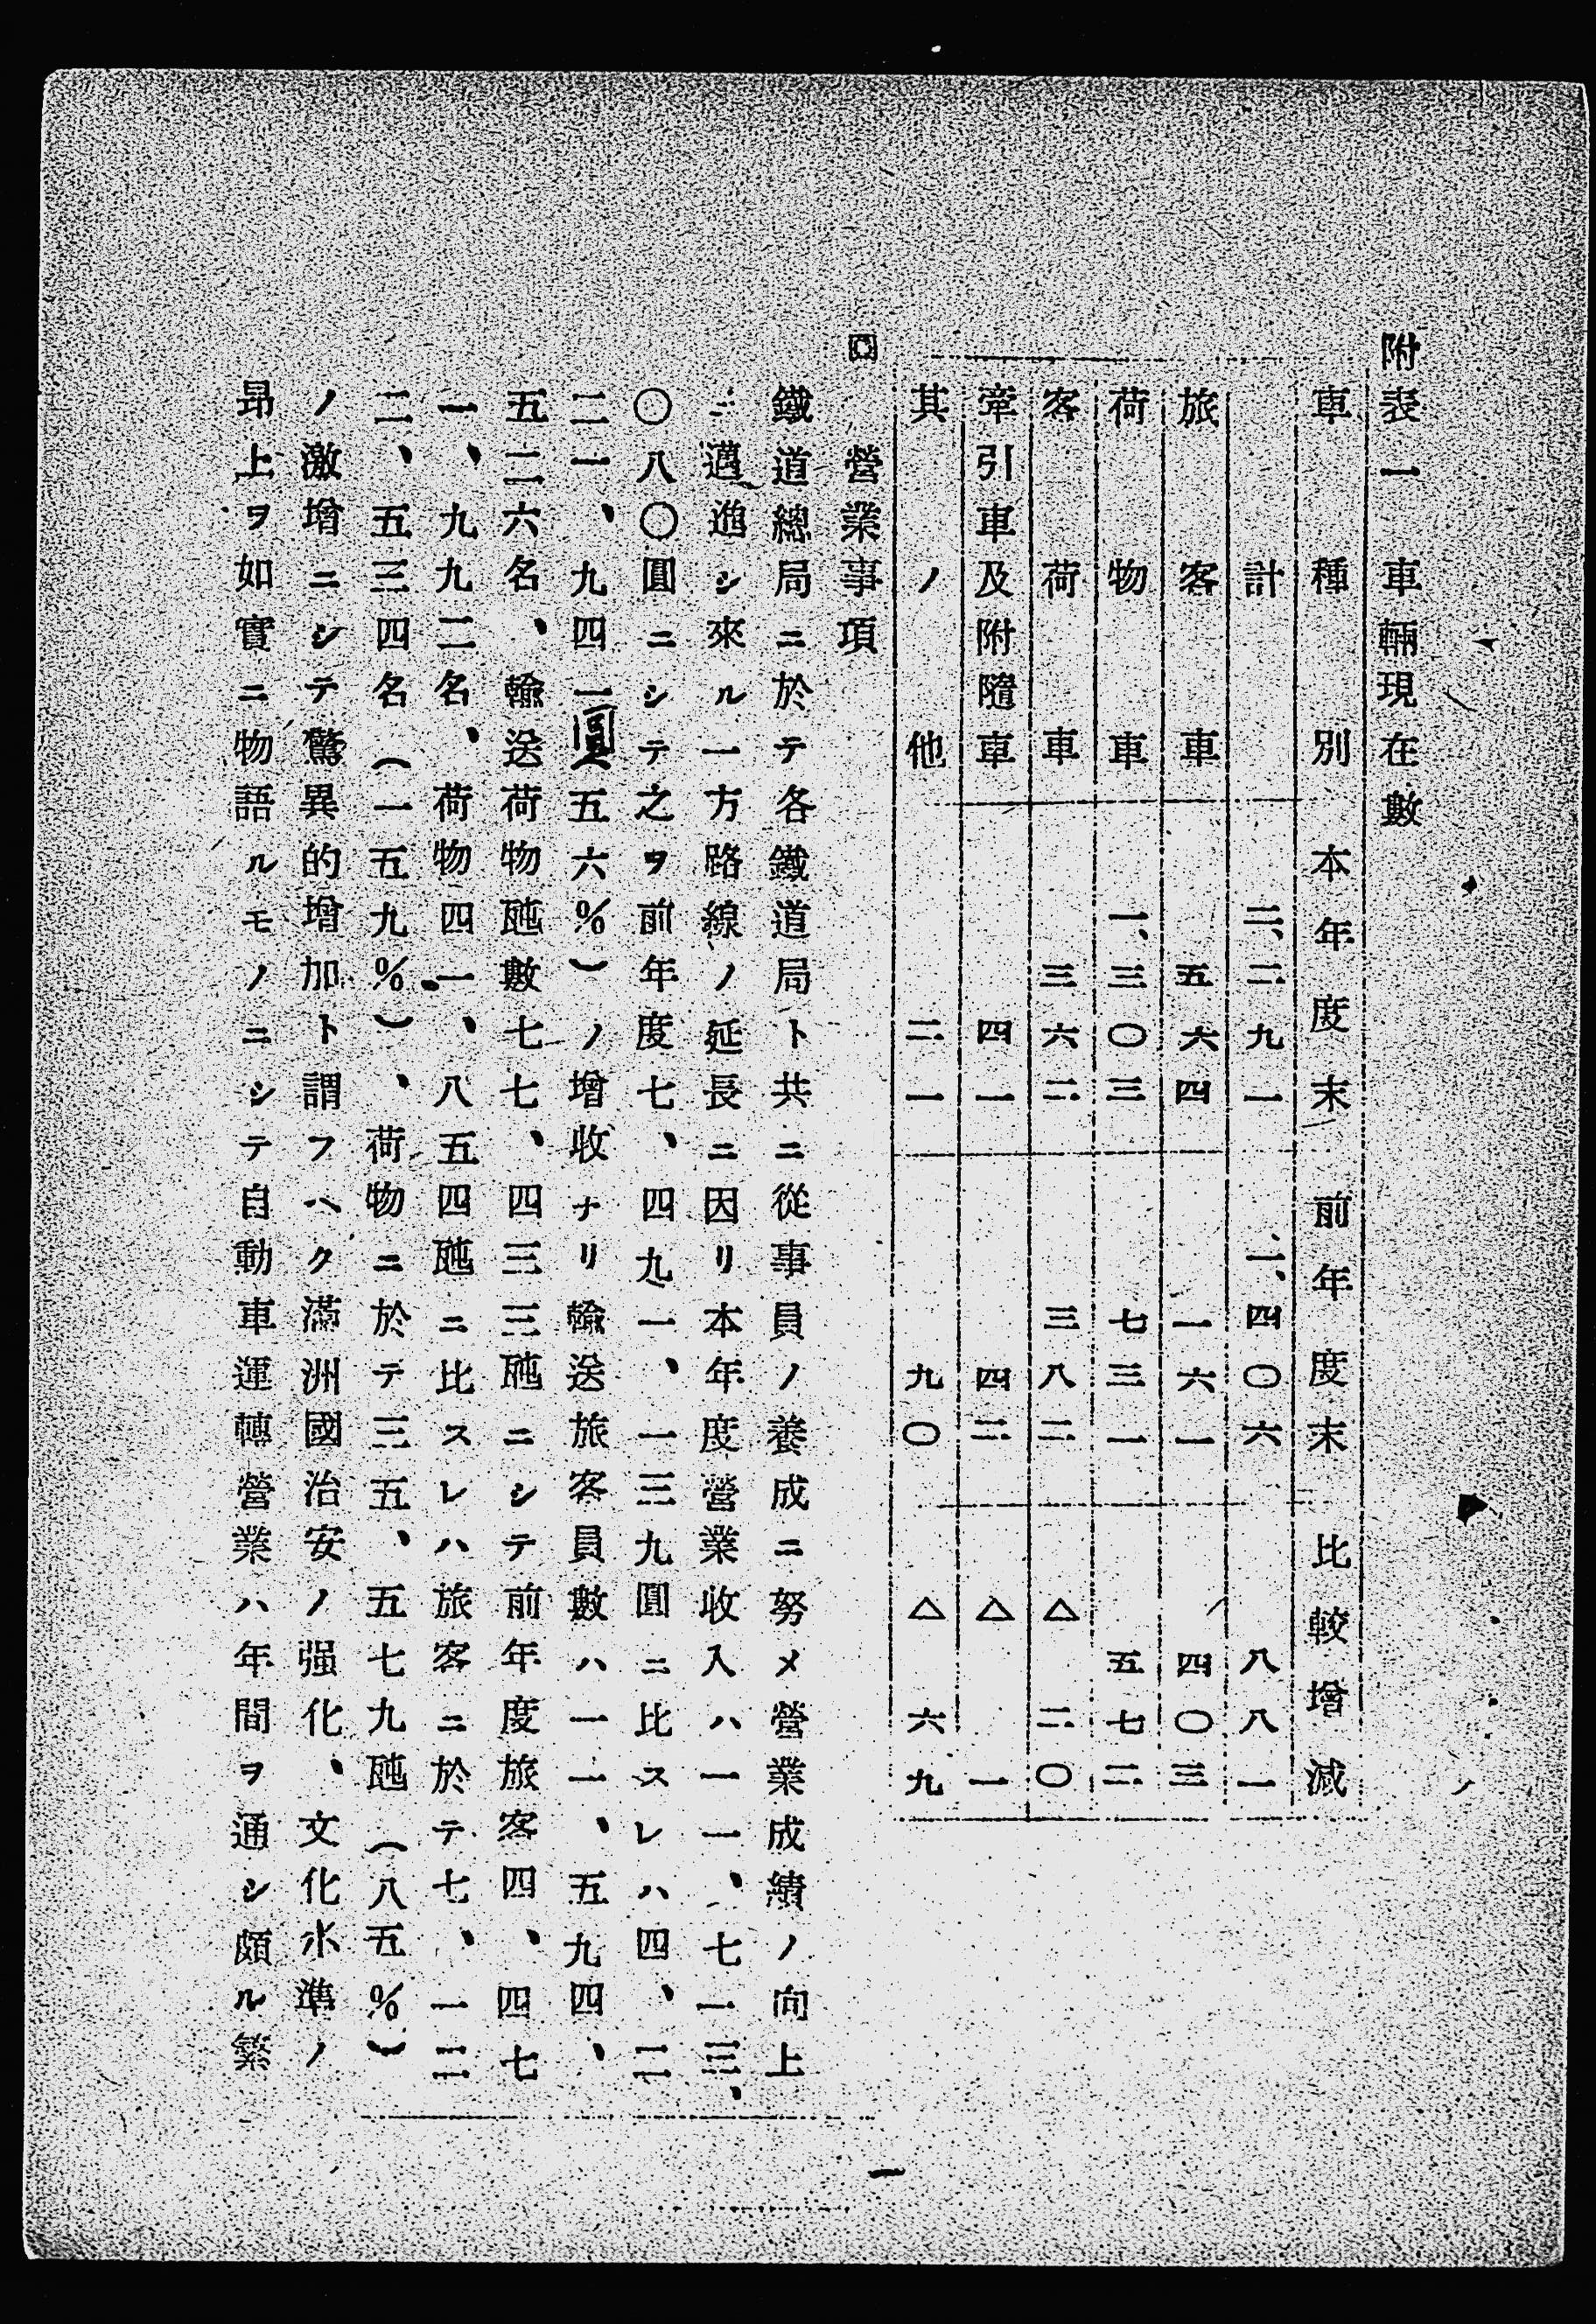 附表一 車輛現在數
車種別 本年度末 前年度末 比較增減
計 二、二九一 一、四〇六 八八一
旅客車 五六四 一六一 四〇三
荷物車 一、三〇三 七三一 五七二
客荷車 三六二 三八二 △ 二〇
牽引車及附隨車 四一 四二 △ 一
其ノ他 二一 九〇 △ 六九
營業事項
鐵道總局ニ於テ各鐵道局ト共ニ從事員ノ養成ニ努メ營業成績ノ向上
ニ邁進シ來ル一方路線ノ延長ニ因リ本年度營業收入ハ一一、七一三、
〇八〇圓ニシテ之ヲ前年度七、四九一、一三九圓ニ比スレハ四、二
二一、九四一圓五六%)ノ增收ナリ輸送旅客員數ハ一一、五九四、
五二六名、輸送荷物瓲數七七、四三三瓲ニシテ前年度旅客四、四七
一、九九二名、荷物四一、八五四瓲ニ比スレハ旅客ニ於テ七、一二
二、五三四名(一五九%)、荷物ニ於テ三五、五七九瓲(八五%)
ノ激增ニシテ驚異的增加ト謂フヘク滿洲國治安ノ强化、文化水準ノ
昂上ヲ如實ニ物語ルモノニシテ自動車運轉營業ハ年間ヲ通シ頗ル繁